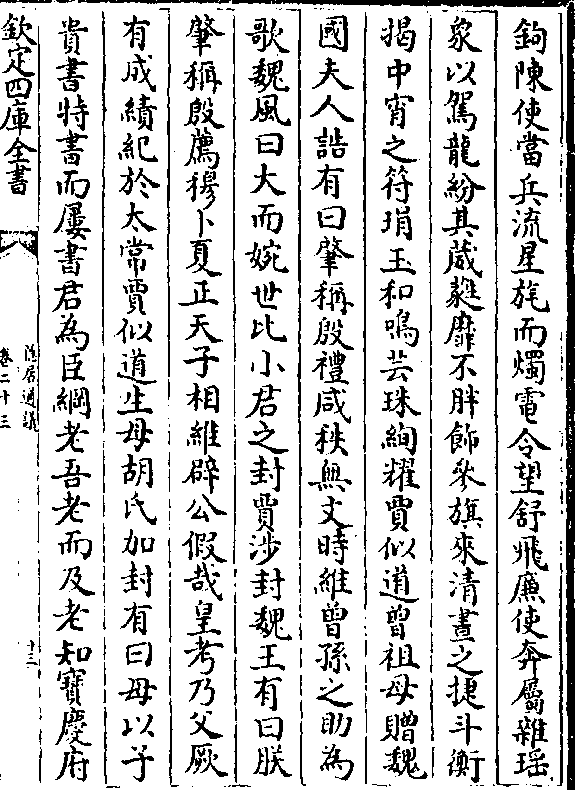 鉤陳使當兵流星旄而燭電令望舒飛廉使奔屬雜瑶
象以駕龍紛其葳蕤靡不胖飾參旗來清晝之捷斗衡
揭中宵之符琄玉和鳴芸珠絢耀賈似道曾祖母贈魏
國夫人誥有曰肇稱殷禮咸秩無文時維曾孫之助為
歌魏風曰大而婉世比小君之封賈涉封魏王有曰朕
肇稱殷薦穆卜夏正天子相維辟公假哉皇考乃父厥
有成績紀於太常賈似道生母胡氏加封有曰母以子
貴書特書而屢書君為臣綱老吾老而及老知寶慶府
欽定四庫全書
隱居通議
卷二十三
十三